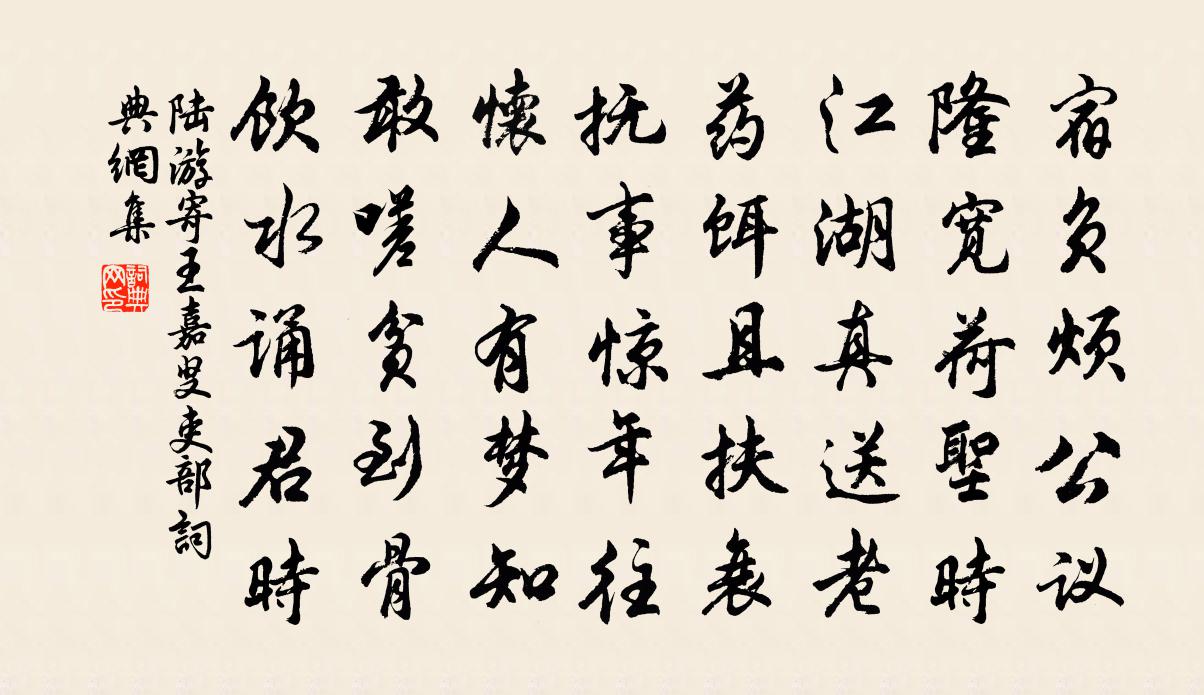 宿负烦公议
隆宽荷聖時
江湖真送老
药饵且扶衰
抚事惊年往
懷人有梦知
敢嗟贫到骨
饮水誦君時
陆游寄王嘉叟吏部詞
典網集
詞典
网印